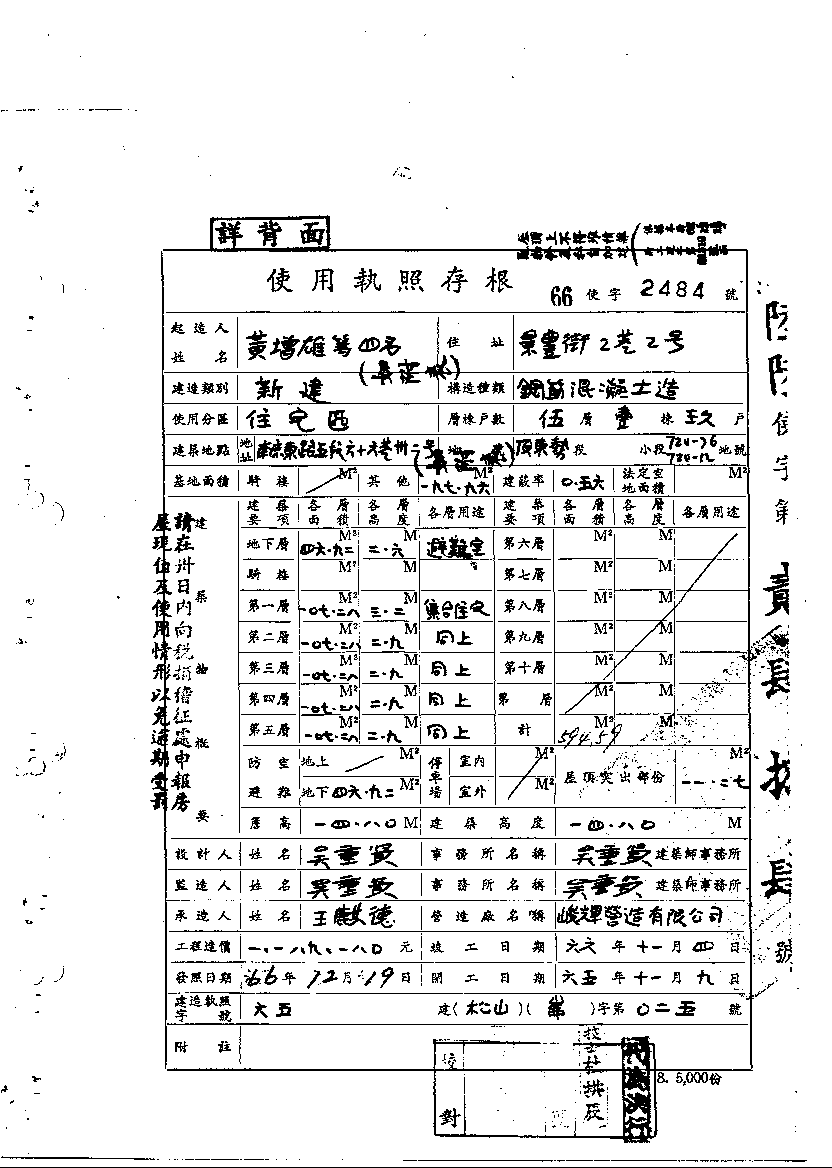 詳背面
使用執照存根
66 使字 2484 號
起造人姓名 黃增雄等四名 住址 景豐街2巷2号
建造類別 新建 構造種類 鋼筋混凝土造
使用分區 住宅區 層棟戶數 伍層壹棟玖戶
建築地點 地址 南京東路五段六十六巷卅二号 地 頂東勢段 小段 地號
基地面積 騎樓 M² 其他 一九七.九六 M² 建蔽率 0.五六 法定空地面積 M²
建築要項 各層面積 各層高度 各層用途 建築要項 各層面積 各層高度 各層用途
地下層 四六.九二 M² 二.六 M 避難室 第六層 M² M
騎樓 M² M 第七層 M² M
第一層 一0七.二八 M² 三.二 M 集合住宅 第八層 M² M
第二層 一0七.二八 M² 二.九 M 同上 第九層 M² M
第三層 一0七.二八 M² 二.九 M 同上 第十層 M² M
第四層 一0七.二八 M² 二.九 M 同上 第 層 M² M
第五層 一0七.二八 M² 二.九 M 同上 計 594.59 M² M
防空避難 地上 M² 停車場 室內 M² 屋頂突出部份 一一.二七 M²
地下 四六.九二 M² 室外 M²
簷高 一四.八0 M 建築高度 一四.八0 M
設計人 姓名 吳重賢 事務所名稱 吳重賢 建築師事務所
監造人 姓名 吳重賢 事務所名稱 吳重賢 建築師事務所
承造人 姓名 王麒德 營造廠名稱 峻輝營造有限公司
工程造價 一.一八九.一八0 元 竣工日期 六六年十一月四日
發照日期 66年12月19日 開工日期 六五年十一月九日
建造執照字號 六五 建(松山)( )字第 0二五 號
附註
建築物概要
請在卅日內向稅捐稽征處申報房
屋現值及使用情形以免逾期受罰
陸陸使字第貳肆捌肆號
校對
8. 5,000份